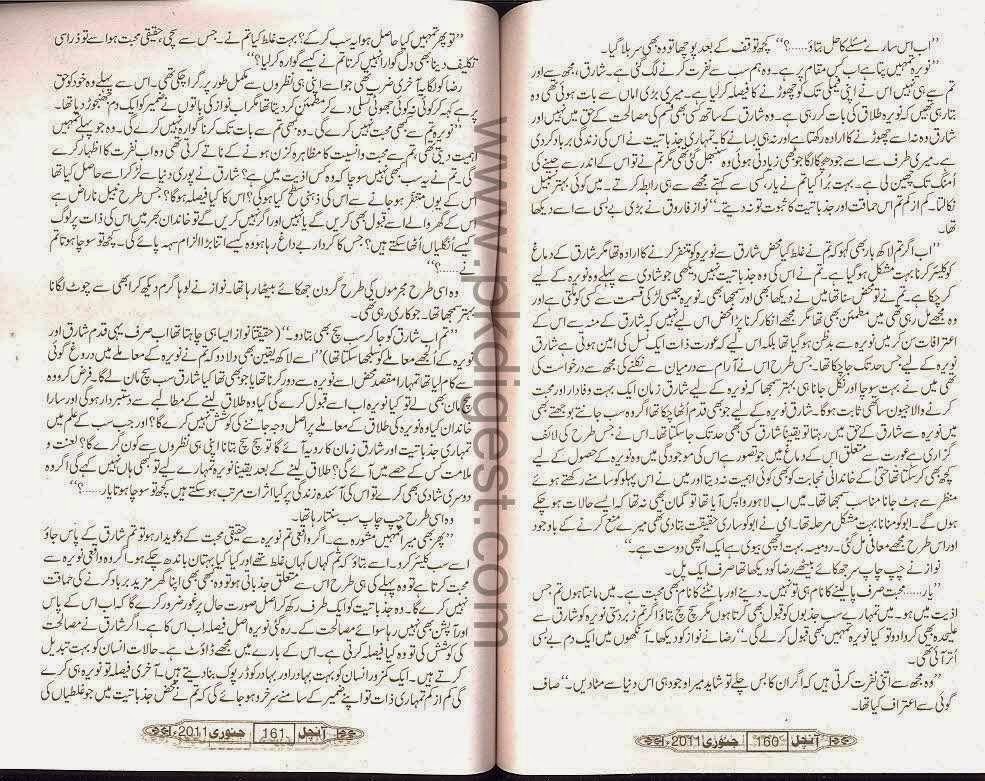 ”اب اس سارے مسئلے کا حل بتاؤ......؟“ کچھ توقف کے بعد پوچھا تو وہ بھی سر ہلا گیا۔
”نویرہ تمہیں پتا ہے اب کس مقام پر ہے۔ وہ ہم سب سے نفرت کرنے لگ گئی ہے۔ شارق، مجھ سے اور
تم سے ہی نہیں اس نے اپنی فیملی تک کو چھوڑنے کا فیصلہ کر لیا ہے۔ میری بڑی اماں سے بات ہوئی تھی وہ
بتا رہی تھیں کہ نویرہ طلاق کی بات کر رہی ہے۔ وہ شارق کے ساتھ کسی بھی قسم کی مصالحت کے حق میں نہیں اور
شارق وہ نہ اسے چھوڑنے کا ارادہ رکھتا ہے اور نہ ہی بسانے کا۔ تمہاری جذباتیت نے اس کی زندگی برباد کر دی
ہے۔ میری طرف سے اسے جو دھچکا لگا جو بھی زیادتی ہوئی وہ سنبھل گئی تھی مگر تم نے تو اس کے اندر سے جینے کی
اُمنگ تک چھین لی ہے۔ بہت بُرا کیا تم نے یار، کسی سے کہتے مجھ سے ہی رابطہ کرتے۔ میں کوئی بہتر سبیل
نکالتا۔ کم از کم تم اس حماقت اور جذباتیت کا ثبوت تو نہ دیتے۔“ نواز فاروق نے بڑی بے بسی سے اسے دیکھا
تھا۔
”اب اگر تم لاکھ بار بھی کہو کہ تم نے غلط کیا محض شارق سے نویرہ کو متنفر کرنے کا ارادہ تھا مگر شارق کے دماغ
کو کلیئر کرنا بہت مشکل ہو گیا ہے۔ تم نے اس کی وہ جذباتیت نہیں دیکھی جو شادی سے پہلے وہ نویرہ کے لیے
کر چکا ہے۔ تم نے تو محض سنا تھا میں نے دیکھا بھی اور سمجھا بھی۔ نویرہ جیسی لڑکی قسمت سے کسی کو ملتی ہے اور
وہ مجھے مل رہی تھی میں مطمئن بھی تھا مگر مجھے انکار کرنا پڑا محض اس لیے نہیں کہ شارق کے منہ سے اس کے
اعترافات سن کر میں نویرہ سے بدظن ہو گیا تھا بلکہ اس لیے کہ عورت ذات ایک نسل کی امین ہوتی ہے شارق
نویرہ کے لیے جس حد تک جا چکا تھا۔ جس طرح اس نے آرام سے درمیان سے نکلنے کی مجھ سے درخواست کی
تھی میں نے بہت سوچا اور نکل جانا ہی بہتر سمجھا کہ نویرہ کے لیے شارق زمان ایک بہت وفادار اور محبت
کرنے والا جیون ساتھی ثابت ہوگا۔ شارق نویرہ کے لیے جو بھی قدم اُٹھا چکا تھا اگر وہ سب جانتے بوجھتے بھی
میں نویرہ سے شارق کے حق میں رہتا تو یقیناً شارق کسی بھی حد تک جا سکتا تھا۔ اس نے جس طرح کی لائف
گزاری ہے عورت سے متعلق اس کے دماغ میں جو تصور ہے اس کی موجودگی میں وہ نویرہ کے حصول کے لیے
کچھ بھی کر سکتا تھا حتیٰ کے خاندانی نجابت کو بھی کوئی اہمیت نہ دیتا اور میں نے اس پہلو کو سامنے رکھتے ہوئے
منظر سے ہٹ جانا مناسب سمجھا تھا۔ میں اب لاہور واپس آیا تھا تو گمان بھی نہ تھا کہ ایسے حالات ہو چکے
ہوں گے۔ ابو کو منانا بہت مشکل مرحلہ تھا۔ امی نے ابو کو ساری حقیقت بتا دی تھی میرے منع کرنے کے باوجود
اور اس طرح مجھے معافی مل گئی۔ رومیسہ بہت اچھی بیوی ہے ایک اچھی دوست ہے۔“
نواز نے چپ چاپ سر جھکائے بیٹھے رضا کو دیکھا تھا صرف ایک پل۔
”یار...... محبت صرف پا لینے کا نام ہی تو نہیں۔ دینے اور بانٹنے کا نام بھی محبت ہے۔ میں مانتا ہوں تم جس
اذیت میں ہو۔ میں تمہارے سب جذبوں کو قبول بھی کرتا ہوں مگر سچ سچ بتاؤ اگر تم زبردستی نویرہ کو شارق سے
علیحدہ بھی کروا دو تو کیا نویرہ تمہیں بھی قبول کر لے گی۔“ رضا نے نواز کو دیکھا۔ آنکھوں میں ایک دم بے بسی
اُتر آئی تھی۔
”وہ مجھ سے اتنی نفرت کرتی ہیں کہ اگر ان کا بس چلے تو شاید میرا وجود ہی اس دنیا سے مٹا دیں۔“ صاف
گوئی سے اعتراف کیا تھا۔
آنچل 160 جنوری 2011
”تو پھر تمہیں کیا حاصل ہوا یہ سب کر کے؟ بہت غلط کیا تم نے۔ جس سے سچی حقیقی محبت ہو اسے تو ذرا سی
تکلیف دینا بھی دل گوارا نہیں کرتا تم نے کیسے گوارہ کر لیا؟“
رضا کو لگا یہ آخری ضرب تھی جو اسے اپنی ہی نظروں سے مکمل طور پر گرا چکی تھی۔ اس سے پہلے وہ خود کو حق
پر ہے کہہ کر کوئی نہ کوئی جھوٹی تسلی دے کر مطمئن کر دیتا تھا مگر اب نواز کی باتوں نے ضمیر کو ایک دم جھنجوڑ دیا تھا۔
”نویرہ تم سے کبھی محبت نہیں کرے گی۔ وہ کبھی تم سے بات تک کرنا گوارہ نہیں کرے گی۔ وہ جو پہلے تمہیں
اہمیت دیتی تھی، تم سے محبت و انسیت کا مظاہرہ کزن ہونے کے ناتے کرتی تھی وہ اب نفرت کا اظہار کرے
گی۔ تم نے یہ سب بھی نہیں سوچا کہ وہ کس اذیت میں ہے؟ شارق نے پوری دنیا سے لڑ کر اسے حاصل کیا تھا
اس کے یوں متنفر ہو جانے سے اس کی ذہنی سطح کیا ہوگی؟ اس کا کیا فیصلہ ہوگا؟ جس طرح نبیل ناراض ہے
اس کے گھر والے اسے قبول بھی کریں گے یا نہیں اور اگر نہیں کریں گے تو خاندان بھر میں اس کی ذات پر لوگ
کیسے اُنگلیاں اُٹھا سکتے ہیں؟ جس کا کردار بے داغ رہا ہو وہ کیسے اتنا بڑا الزام سہہ پائے گی۔ کچھ تو سوچا ہوتا تم
نے......؟“
وہ اسی طرح مجرموں کی طرح گردن جھکائے بیٹھا رہا تھا۔ نواز نے لوہا گرم دیکھ کر ابھی سے چوٹ لگانا
بہتر سمجھا تھا۔ جو کاری رہی تھی۔
”تم اب شارق کو جا کر سب سچ بھی بتا دو۔“ (حقیقتاً نواز ایسا ہی چاہتا تھا اب صرف یہی قدم شارق اور
نویرہ کے اُلجھے معاملے کو سلجھا سکتا تھا) ”اسے لاکھ یقین بھی دلا دو کہ تم نے نویرہ کے معاملے میں دروغ گوئی
سے کام لیا تھا تمہارا مقصد محض اسے نویرہ سے دور کرنا تھا یا جو بھی تھا کیا شارق سب سچ مان لے گا۔ فرض کرو وہ
سچ مان بھی لے تو کیا نویرہ اب اسے قبول کرے گی کیا وہ طلاق لینے کے مطالبے سے دستبردار ہوگی اور سارا
خاندان کیا وہ نویرہ کی طلاق کے معاملے پر اصل وجہ جاننے کی کوشش نہیں کرے گا؟ اور جب سب کے علم میں
تمہاری جذباتیت اور شارق زمان کا رویہ آئے گا تو سچ سچ بتانا اپنی ہی نظروں سے کون گرے گا؟ لعنت و
ملامت کس کے حصے میں آئے گی؟ طلاق لینے کے بعد یقیناً نویرہ تمہارے لیے تو کبھی ہاں نہیں کہے گی اگر وہ
دوسری شادی بھی کرے تو اس کی آئندہ زندگی پر کیا اثرات مرتب ہو سکتے ہیں کچھ تو سوچا ہوتا یار......؟“
وہ اسی طرح چپ چاپ سب سنتا رہا تھا۔
”پھر بھی میرا تمہیں مشورہ ہے۔ اگر واقعی تم نویرہ سے حقیقی محبت کے دعویدار ہو تو تم شارق کے پاس جاؤ
اسے سب کلیئر کرو۔ اسے بتاؤ کہ تم کہاں کہاں غلط تھے اور کیا کیا بہتان باندھ چکے ہو۔ اگر وہ واقعی نویرہ سے
محبت کرتا ہے تو وہ پہلے کی ہی طرح اس سے متعلق جذباتی ہوا تو وہ کبھی بھی اپنا گھر مزید برباد کرنے کی حماقت
نہیں کرے گا۔ وہ جذباتیت کو ایک طرف رکھ کر اصل صورت حال پر غور ضرور کرے گا کہ اب اس کے پاس
اور آپشن بھی نہیں رہا سوائے مصالحت کے۔ رہ گئی نویرہ اصل فیصلہ اب اس کا ہے۔ اگر شارق نے مصالحت
کی کوشش کی تو وہ کیا فیصلہ کرتی ہے۔ اس کے بارے میں مجھے ڈاؤٹ ہے۔ حالات انسان کو بہت تبدیل
کرتے ہیں۔ ایک کمزور انسان کو بہت بہادر اور بہادر کو ڈرپوک بنا دیتے ہیں۔ آخری فیصلہ تو نویرہ ہی کرے
گی کم از کم تمہاری ذات تو اپنے ضمیر کے سامنے سرخرو ہو جائے گی کہ تم نے محض جذباتیت میں جو غلطیاں کی
آنچل 161 جنوری 2011
www.pkdigest.com